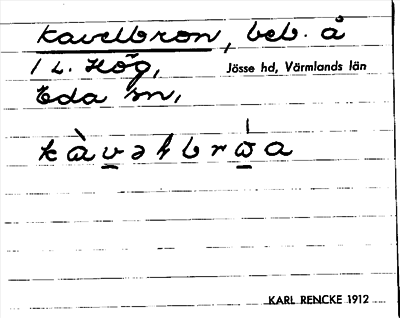 Kavelbron, beb. å
1 L. Hög, Jösse hd, Värmlands län
Eda sn,
KARL RENCKE 1912